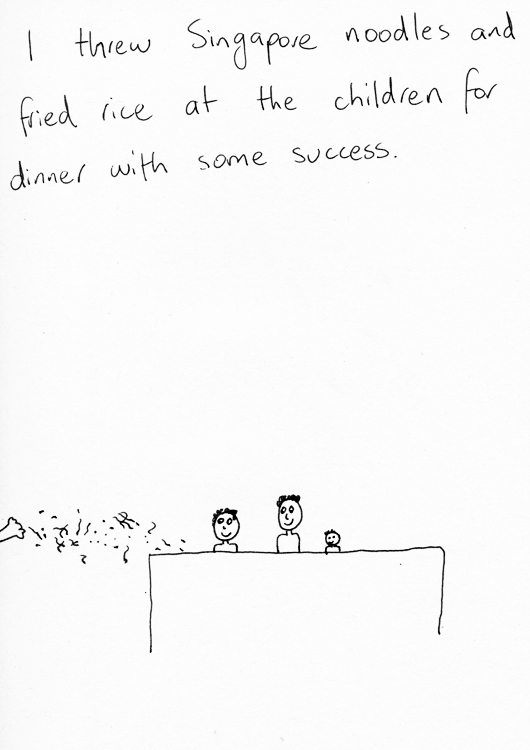 I threw Singapore noodles and
fried rice at the children for
dinner with some success.